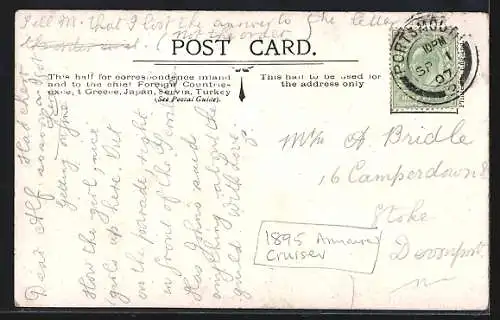 Tell M. that I lost the answer to the letter
the order
(not the order)
POST CARD.
This half for correspondence inland
and to the chief Foreign Countries
Greece, Japan, Servia, Turkey
(See Postal Guide).
This half to be used for
the address only
PORTSMOUTH
SP
07
Mr A Bridle
16 Camperdown
Stoke
Devonport
1895 Armoured
Cruiser
Dear Alf
How the girl, nice
girls up here. Out
on the parade, right
in front of the
Has Johns said
anything about the
With love